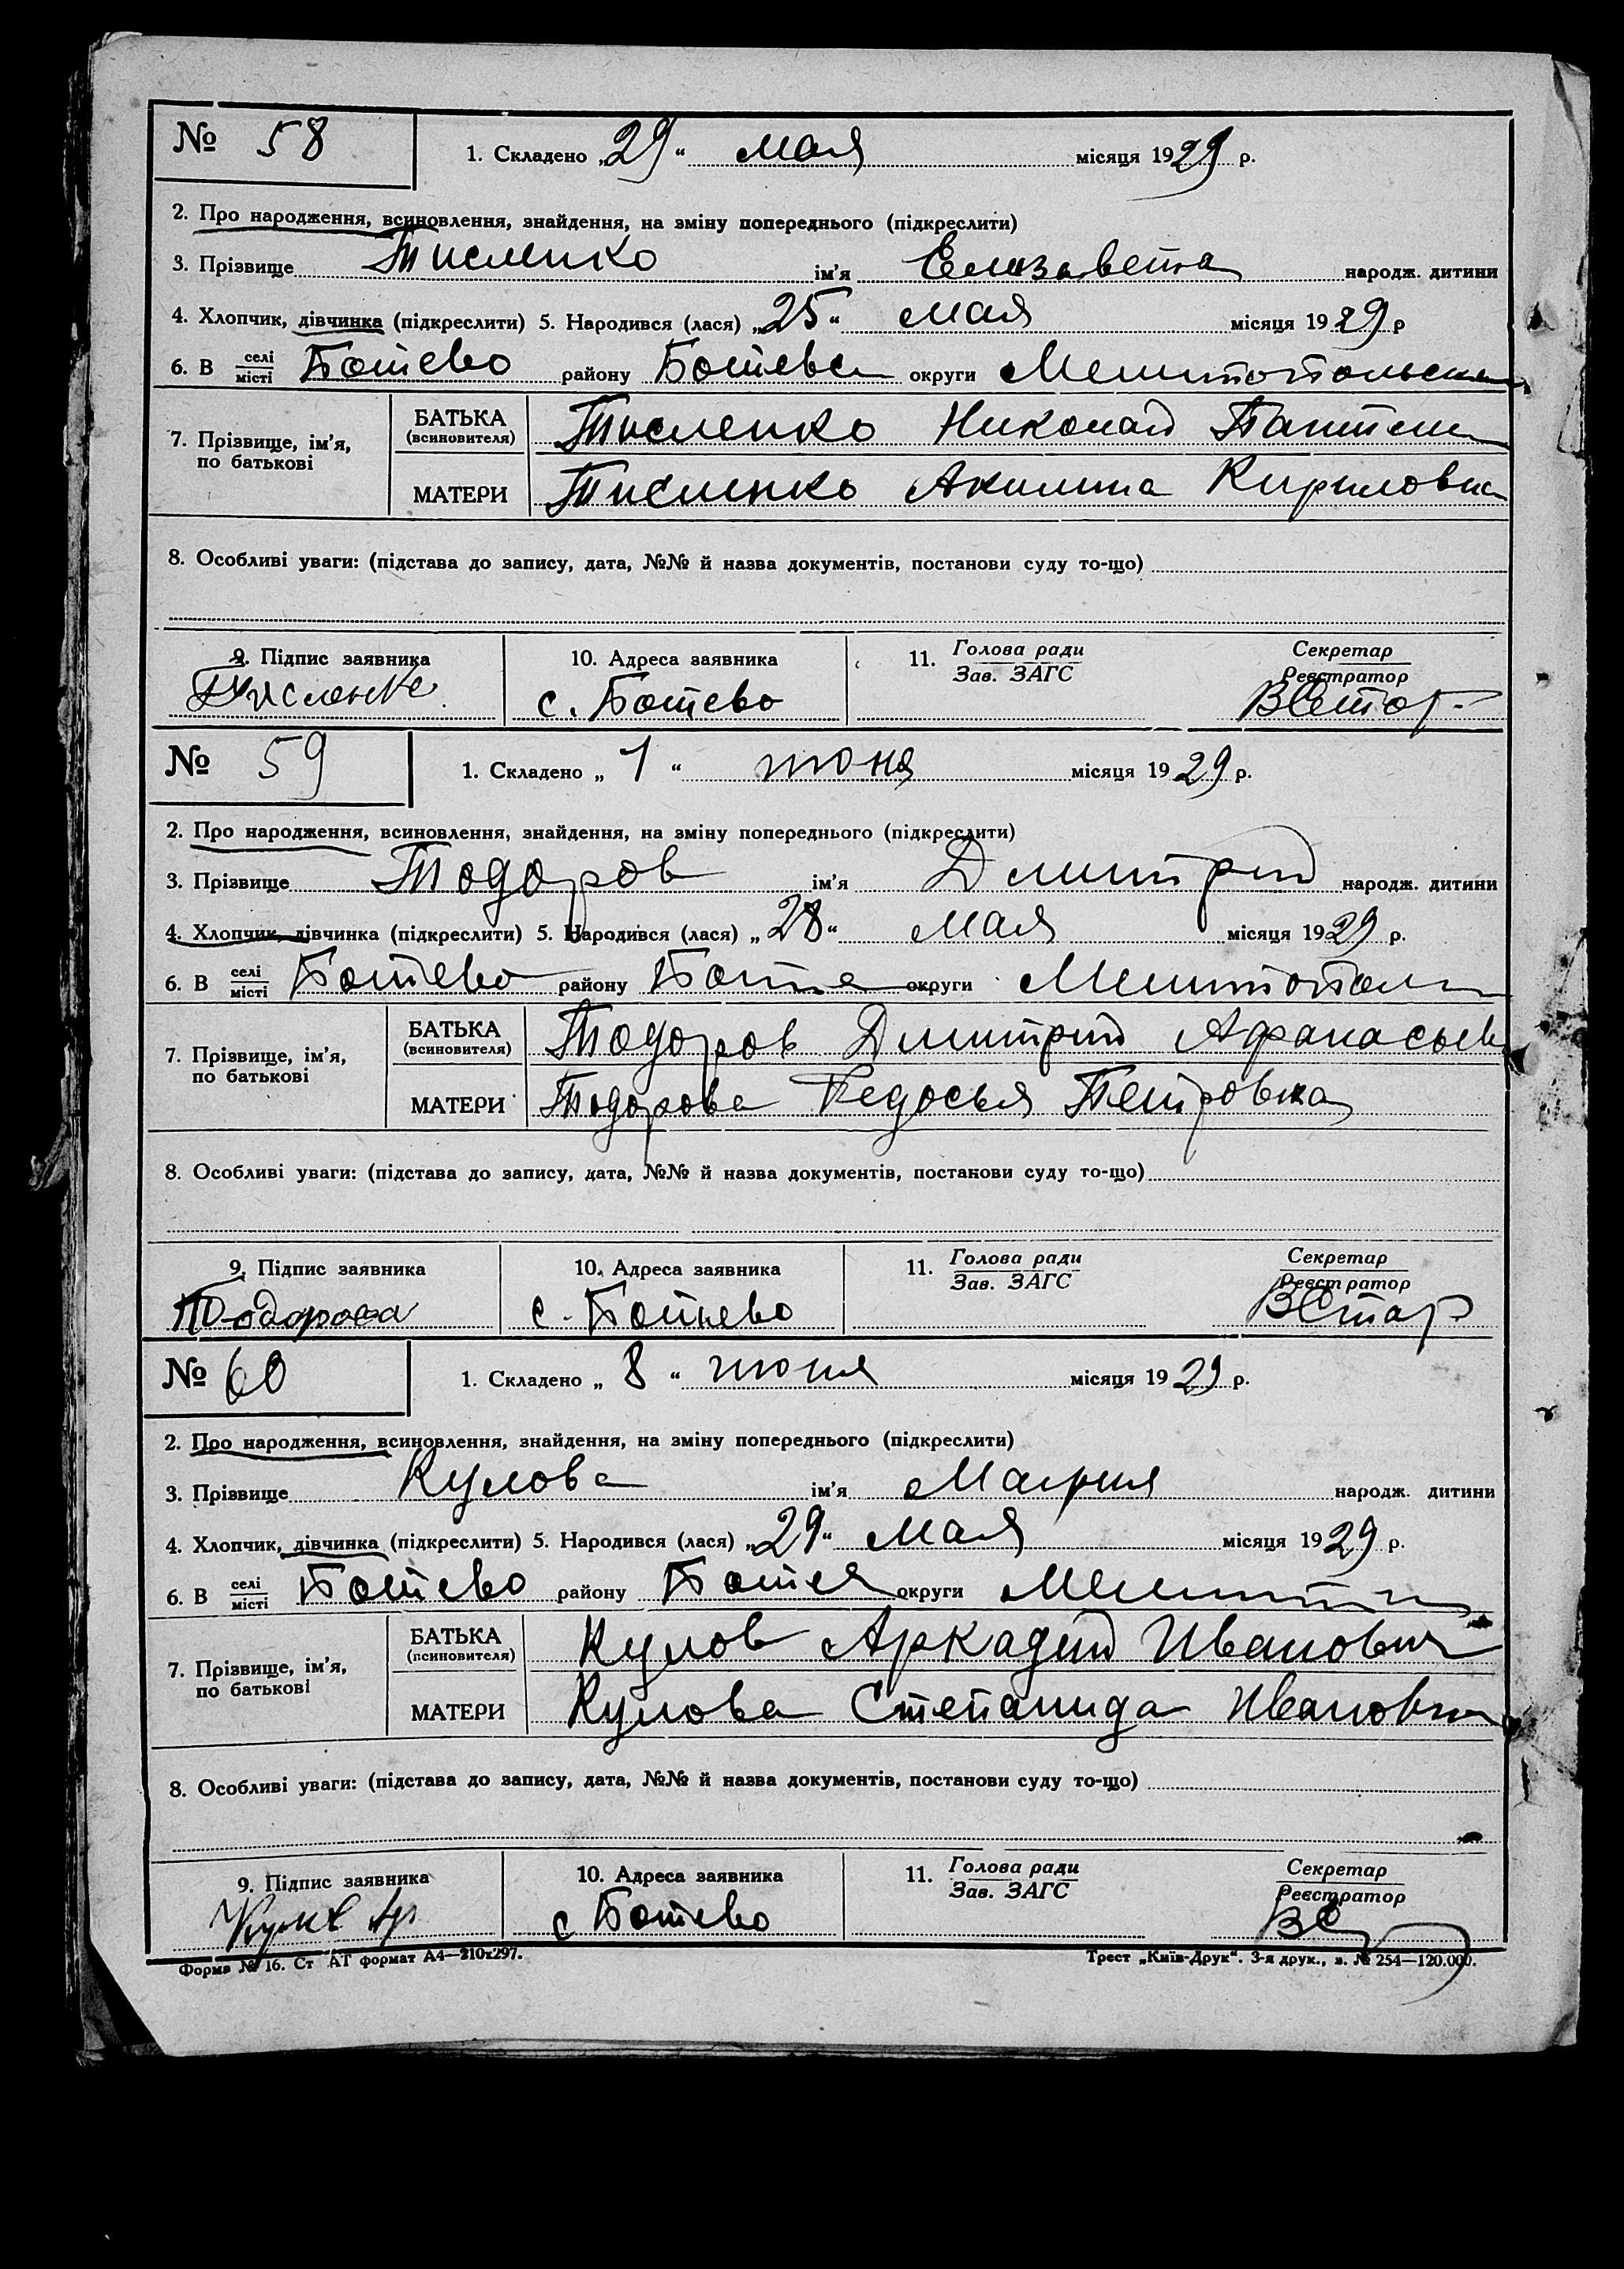 № 58 1. Складено „29“ мая місяця 1929 р.
2. Про народження, всиновлення, знайдення, на зміну попереднього (підкреслити)
3. Прізвище Тисленко ім'я Елизавета народж. дитини
4. Хлопчик, дівчинка (підкреслити) 5. Народився (лася) „25“ мая місяця 1929 р
6. В селі місті Ботево району Ботевск округи Мелитопольская
7. Прізвище, ім'я, по батькові
БАТЬКА (всиновителя) Тисленко Николай
МАТЕРИ Тисленко Акилина Кириловна
8. Особливі уваги: (підстава до запису, дата, №№ й назва документів, постанови суду то-що)
9. Підпис заявника 10. Адреса заявника 11. Голова ради Зав. ЗАГС Секретар Реєстратор
Тисленко с. Ботево
№ 59 1. Складено „1“ июня місяця 1929 р.
2. Про народження, всиновлення, знайдення, на зміну попереднього (підкреслити)
3. Прізвище Тодоров ім'я Дмитрий народж. дитини
4. Хлопчик, дівчинка (підкреслити) 5. Народився (лася) „28“ мая місяця 1929 р.
6. В селі місті Ботево району округи Мелитопол
7. Прізвище, ім'я, по батькові
БАТЬКА (всиновителя) Тодоров Дмитрий Афанасьев
МАТЕРИ Тодорова Федосья Петровна
8. Особливі уваги: (підстава до запису, дата, №№ й назва документів, постанови суду то-що)
9. Підпис заявника 10. Адреса заявника 11. Голова ради Зав. ЗАГС Секретар Реєстратор
Тодорова с. Ботьево
№ 60 1. Складено „8“ июня місяця 1929 р.
2. Про народження, всиновлення, знайдення, на зміну попереднього (підкреслити)
3. Прізвище Кулова ім'я Мария народж. дитини
4. Хлопчик, дівчинка (підкреслити) 5. Народився (лася) „29“ мая місяця 1929 р.
6. В селі місті Ботево району округи
7. Прізвище, ім'я, по батькові
БАТЬКА (всиновителя) Кулов Аркадий Иванович
МАТЕРИ Кулова Степанида Ивановна
8. Особливі уваги: (підстава до запису, дата, №№ й назва документів, постанови суду то-що)
9. Підпис заявника 10. Адреса заявника 11. Голова ради Зав. ЗАГС Секретар Реєстратор
с Ботево
Форма № 16. Ст АТ формат А4—210х297. Трест „Київ-Друк“. 3-я друк., з. № 254—120.000.